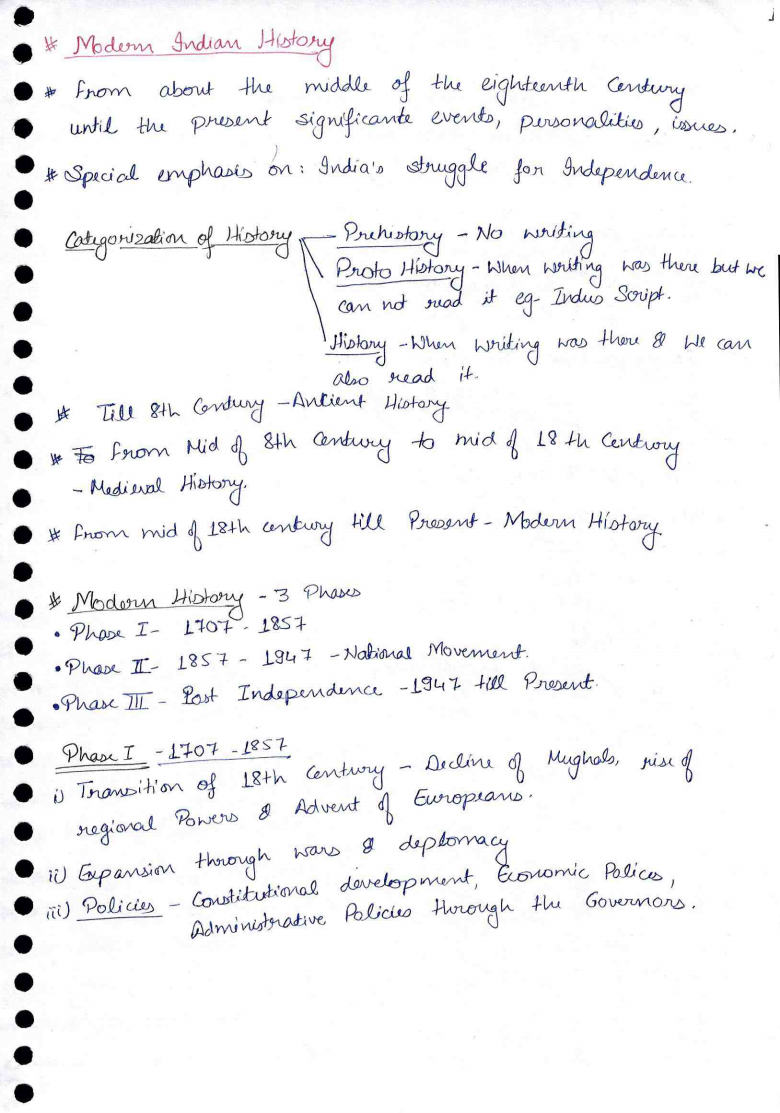 # Modern Indian History
* From about the middle of the eighteenth Century
until the present significante events, personalities, issues.
* Special emphasis on: India's struggle for Independence.
Categorization of History - Prehistory - No writing
Proto History - When writing was there but we
can not read it eg- Indus Script.
History - When writing was there & We can
also read it.
# Till 8th Century - Antient History
* To From Mid of 8th Century to mid of 18 th Century
- Medieval History.
# From mid of 18th century till Present - Modern History
# Modern History - 3 Phases
• Phase I - 1707 - 1857
• Phase II - 1857 - 1947 - National Movement.
• Phase III - Post Independence - 1947 till Present.
Phase I - 1707 - 1857
i) Transition of 18th Century - Decline of Mughals, rise of
regional Powers & Advent of Europeans.
ii) Expansion through wars & deplomacy
iii) Policies - Constitutional development, Economic Polices,
Administrative Policies through the Governors.